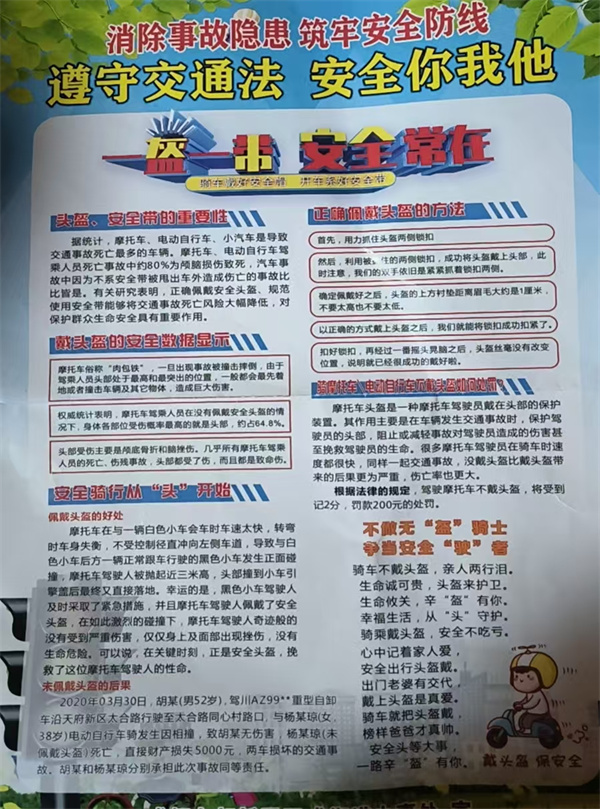 消除事故隐患 筑牢安全防线
遵守交通法 安全你我他
一盔一带 安全常在
头盔、安全带的重要性
据统计，摩托车、电动自行车、小汽车是导致
交通事故死亡最多的车辆。摩托车、电动自行车驾
乘人员死亡事故中约80%为颅脑损伤致死，汽车事
故中因为不系安全带被甩出车外造成伤亡的事故比
比皆是。有关研究表明，正确佩戴安全头盔、规范
使用安全带能够将交通事故死亡风险大幅降低，对
保护群众生命安全具有重要作用。
戴头盔的安全数据显示
摩托车俗称“肉包铁”，一旦出现事故被撞击摔倒，由于
驾乘人员头部处于最高和最突出的位置，一般都会最先着
地或者撞击车辆及其它物体，造成巨大伤害。
权威统计表明，摩托车驾乘人员在没有佩戴安全头盔的情
况下，身体各部位受伤概率最高的就是头部，约占64.8%。
头部受伤主要是颅底骨折和脑挫伤。几乎所有摩托车驾乘
人员的死亡、伤残事故，头部都受了伤，而且都是致命伤。
安全骑行从“头”开始
佩戴头盔的好处
摩托车在与一辆白色小车会车时车速太快，转弯
时车身失衡，不受控制径直冲向左侧车道，导致与白
色小车后方一辆正常跟车行驶的黑色小车发生正面碰
撞，摩托车驾驶人被抛起近三米高，头部撞到小车引
擎盖后最终又直接落地。幸运的是，黑色小车驾驶人
及时采取了紧急措施，并且摩托车驾驶人佩戴了安全
头盔，在如此激烈的碰撞下，摩托车驾驶人奇迹般的
没有受到严重伤害，仅仅身上及面部出现挫伤，没有
生命危险。可以说，在关键时刻，正是安全头盔，挽
救了这位摩托车驾驶人的性命。
未佩戴头盔的后果
2020年03月30日，胡某(男52岁)，驾川AZ99**重型自卸
车沿天府新区太合路行驶至太合路同心村路口，与杨某琼(女，
38岁)电动自行车骑发生因相撞，致胡某无伤害，杨某琼(未
佩戴头盔)死亡，直接财产损失5000元，两车损坏的交通事
故。胡某和杨某琼分别承担此次事故同等责任。
正确佩戴头盔的方法
首先，用力抓住头盔两侧锁扣
然后，利用被 住的两侧锁扣，成功将头盔戴上头部，此
时注意，我们的双手依旧是紧紧抓着锁扣两侧。
确定佩戴好之后，头盔的上方衬垫距离眉毛大约是1厘米，
不要太高也不要太低。
以正确的方式戴上头盔之后，我们就能将锁扣成功扣紧了。
扣好锁扣，再经过一番摇头晃脑之后，头盔丝毫没有改变
位置，说明就已经很成功的戴好啦。
骑摩托车、电动自行车不戴头盔如何处罚?
摩托车头盔是一种摩托车驾驶员戴在头部的保护
装置。其作用主要是在车辆发生交通事故时，保护驾
驶员的头部，阻止或减轻事故对驾驶员造成的伤害甚
至挽救驾驶员的生命。很多摩托车驾驶员在骑车时速
度都很快，同样一起交通事故，没戴头盔比戴头盔带
来的后果更为严重，伤亡率也更大。
根据法律的规定，驾驶摩托车不戴头盔，将受到
记2分，罚款200元的处罚。
不做无“盔”骑士
争当安全“驶”者
骑车不戴头盔，亲人两行泪。
生命诚可贵，头盔来护卫。
生命攸关，辛“盔”有你。
幸福生活，从“头”守护。
骑乘戴头盔，安全不吃亏。
心中记着家人爱，
安全出行头盔戴。
出门老婆有交代，
戴上头盔是真爱。
骑车就把头盔戴，
榜样爸爸才真帅。
安全头等大事，
一路辛“盔”有你。
戴头盔 保安全